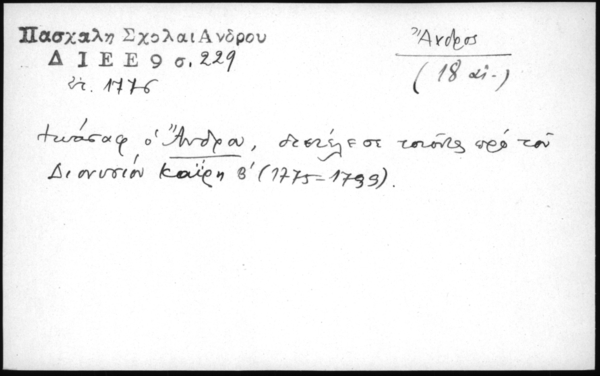 Πασχαλη Σχολαι Ανδρου
Δ Ι Ε Ε 9 σ. 229
ἔτ. 1776
Ἄνδρος
(18 αἰ.)
Ἰωάσαφ ὁ Ἄνδρου, διετέλεσε τοιοῦτος πρό τοῦ
Διονυσίου Καΐρη β' (1775=1799).